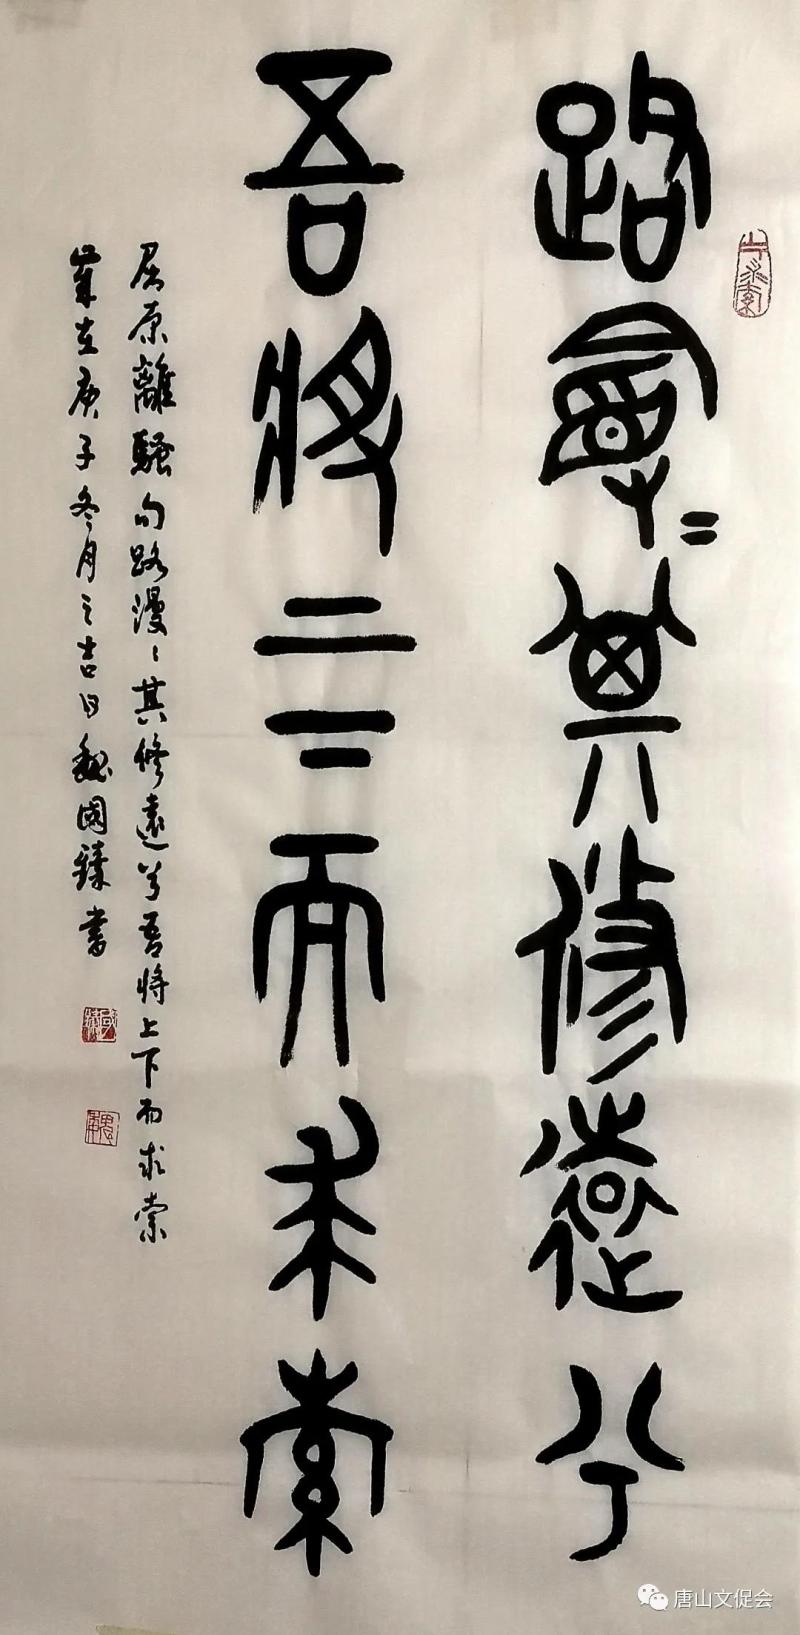 路曼=其修遠兮
吾將上下而求索
屈原離騷句路漫〻其修遠兮吾将上下而求索
歲在庚子冬月之吉日魏國臻書
唐山文促会